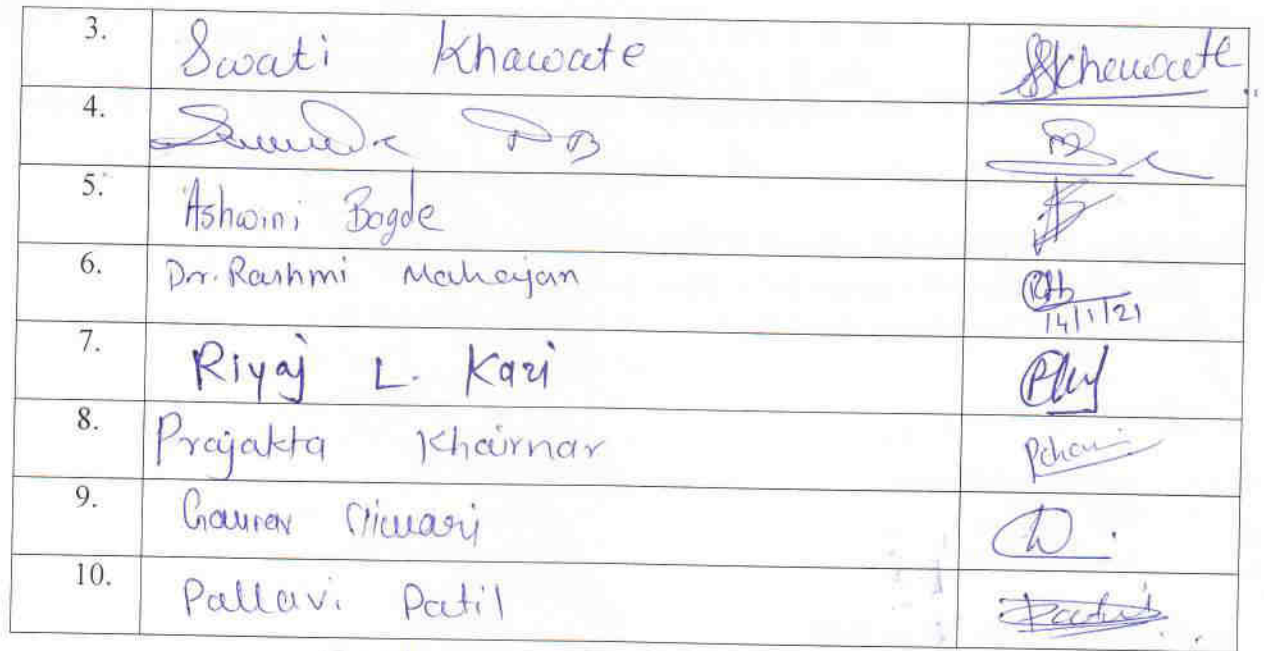 3. Swati Khawate SKhawate
4.
5. Ashwini Bogde
6. Dr. Rashmi Mahajan
14/1/21
7. Riyaj L. Kazi
8. Prajakta Khairnar
9. Gaurav Tiwari
10. Pallavi Patil Patil